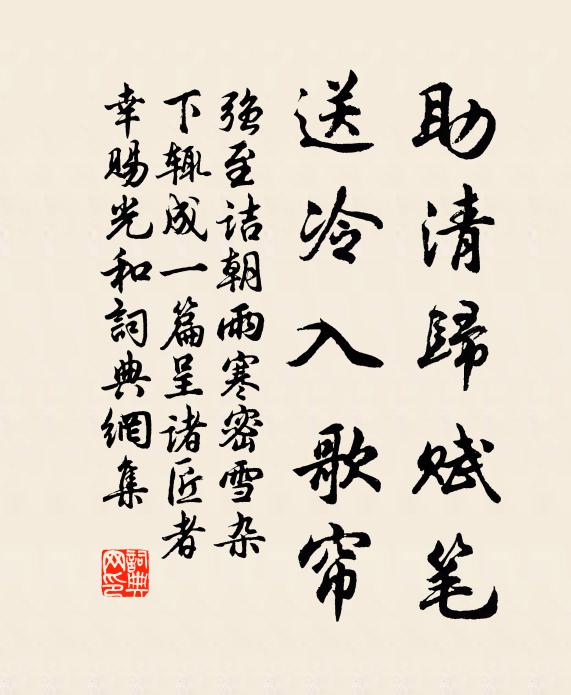 助清歸赋笔
送冷入歌帘
強至詰朝雨寒密雪杂
下輒成一篇呈诸匠者
幸賜光和詞典網集
詞典网印